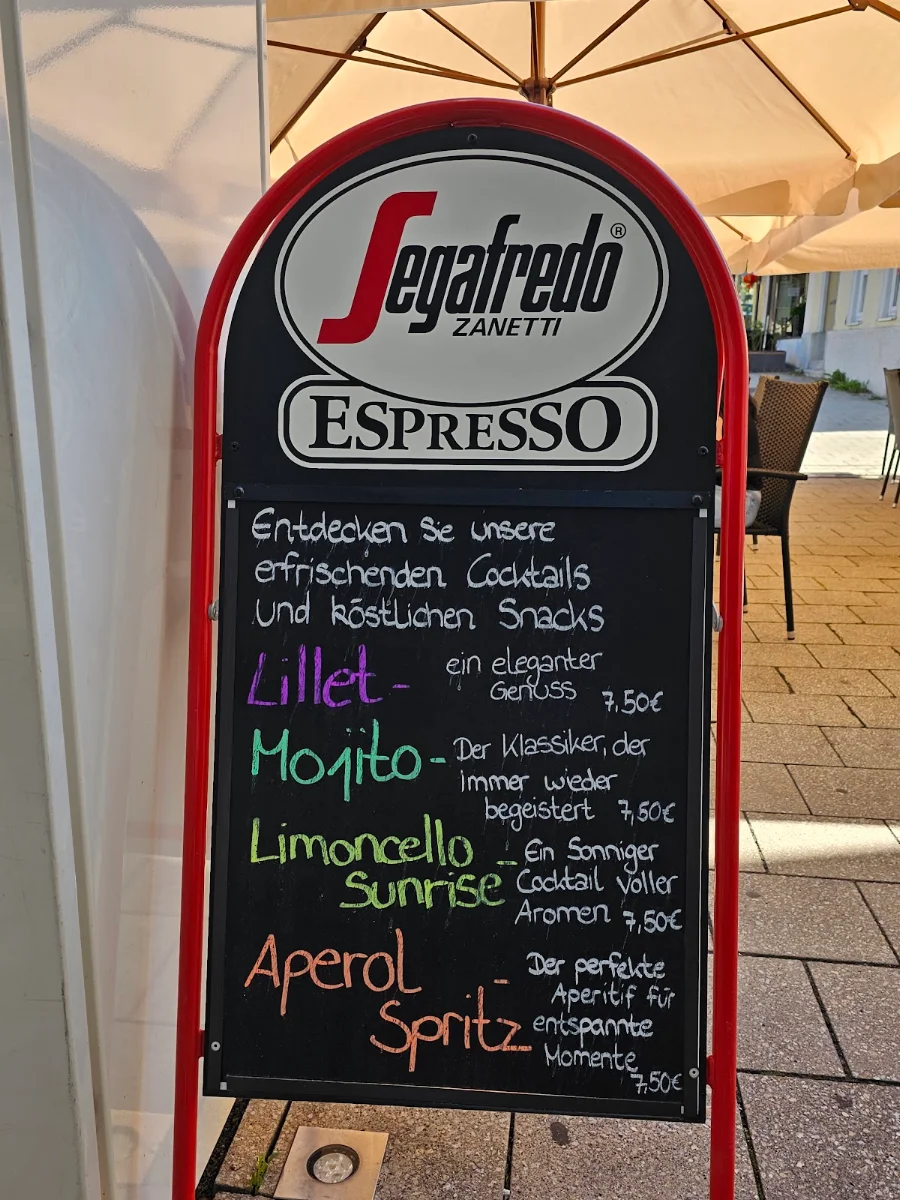 Segafredo®
ZANETTI
ESPRESSO
Entdecken Sie unsere
erfrischenden Cocktails
Und köstlichen Snacks
Lillet - ein eleganter
Genuss 7,50€
Mojito - Der Klassiker, der
Immer wieder
begeistert 7,50€
Limoncello - Ein Sonniger
Sunrise Cocktail voller
Aromen 7,50€
Aperol - Der perfekte
Aperitif für
Spritz entspannte
Momente
7,50€